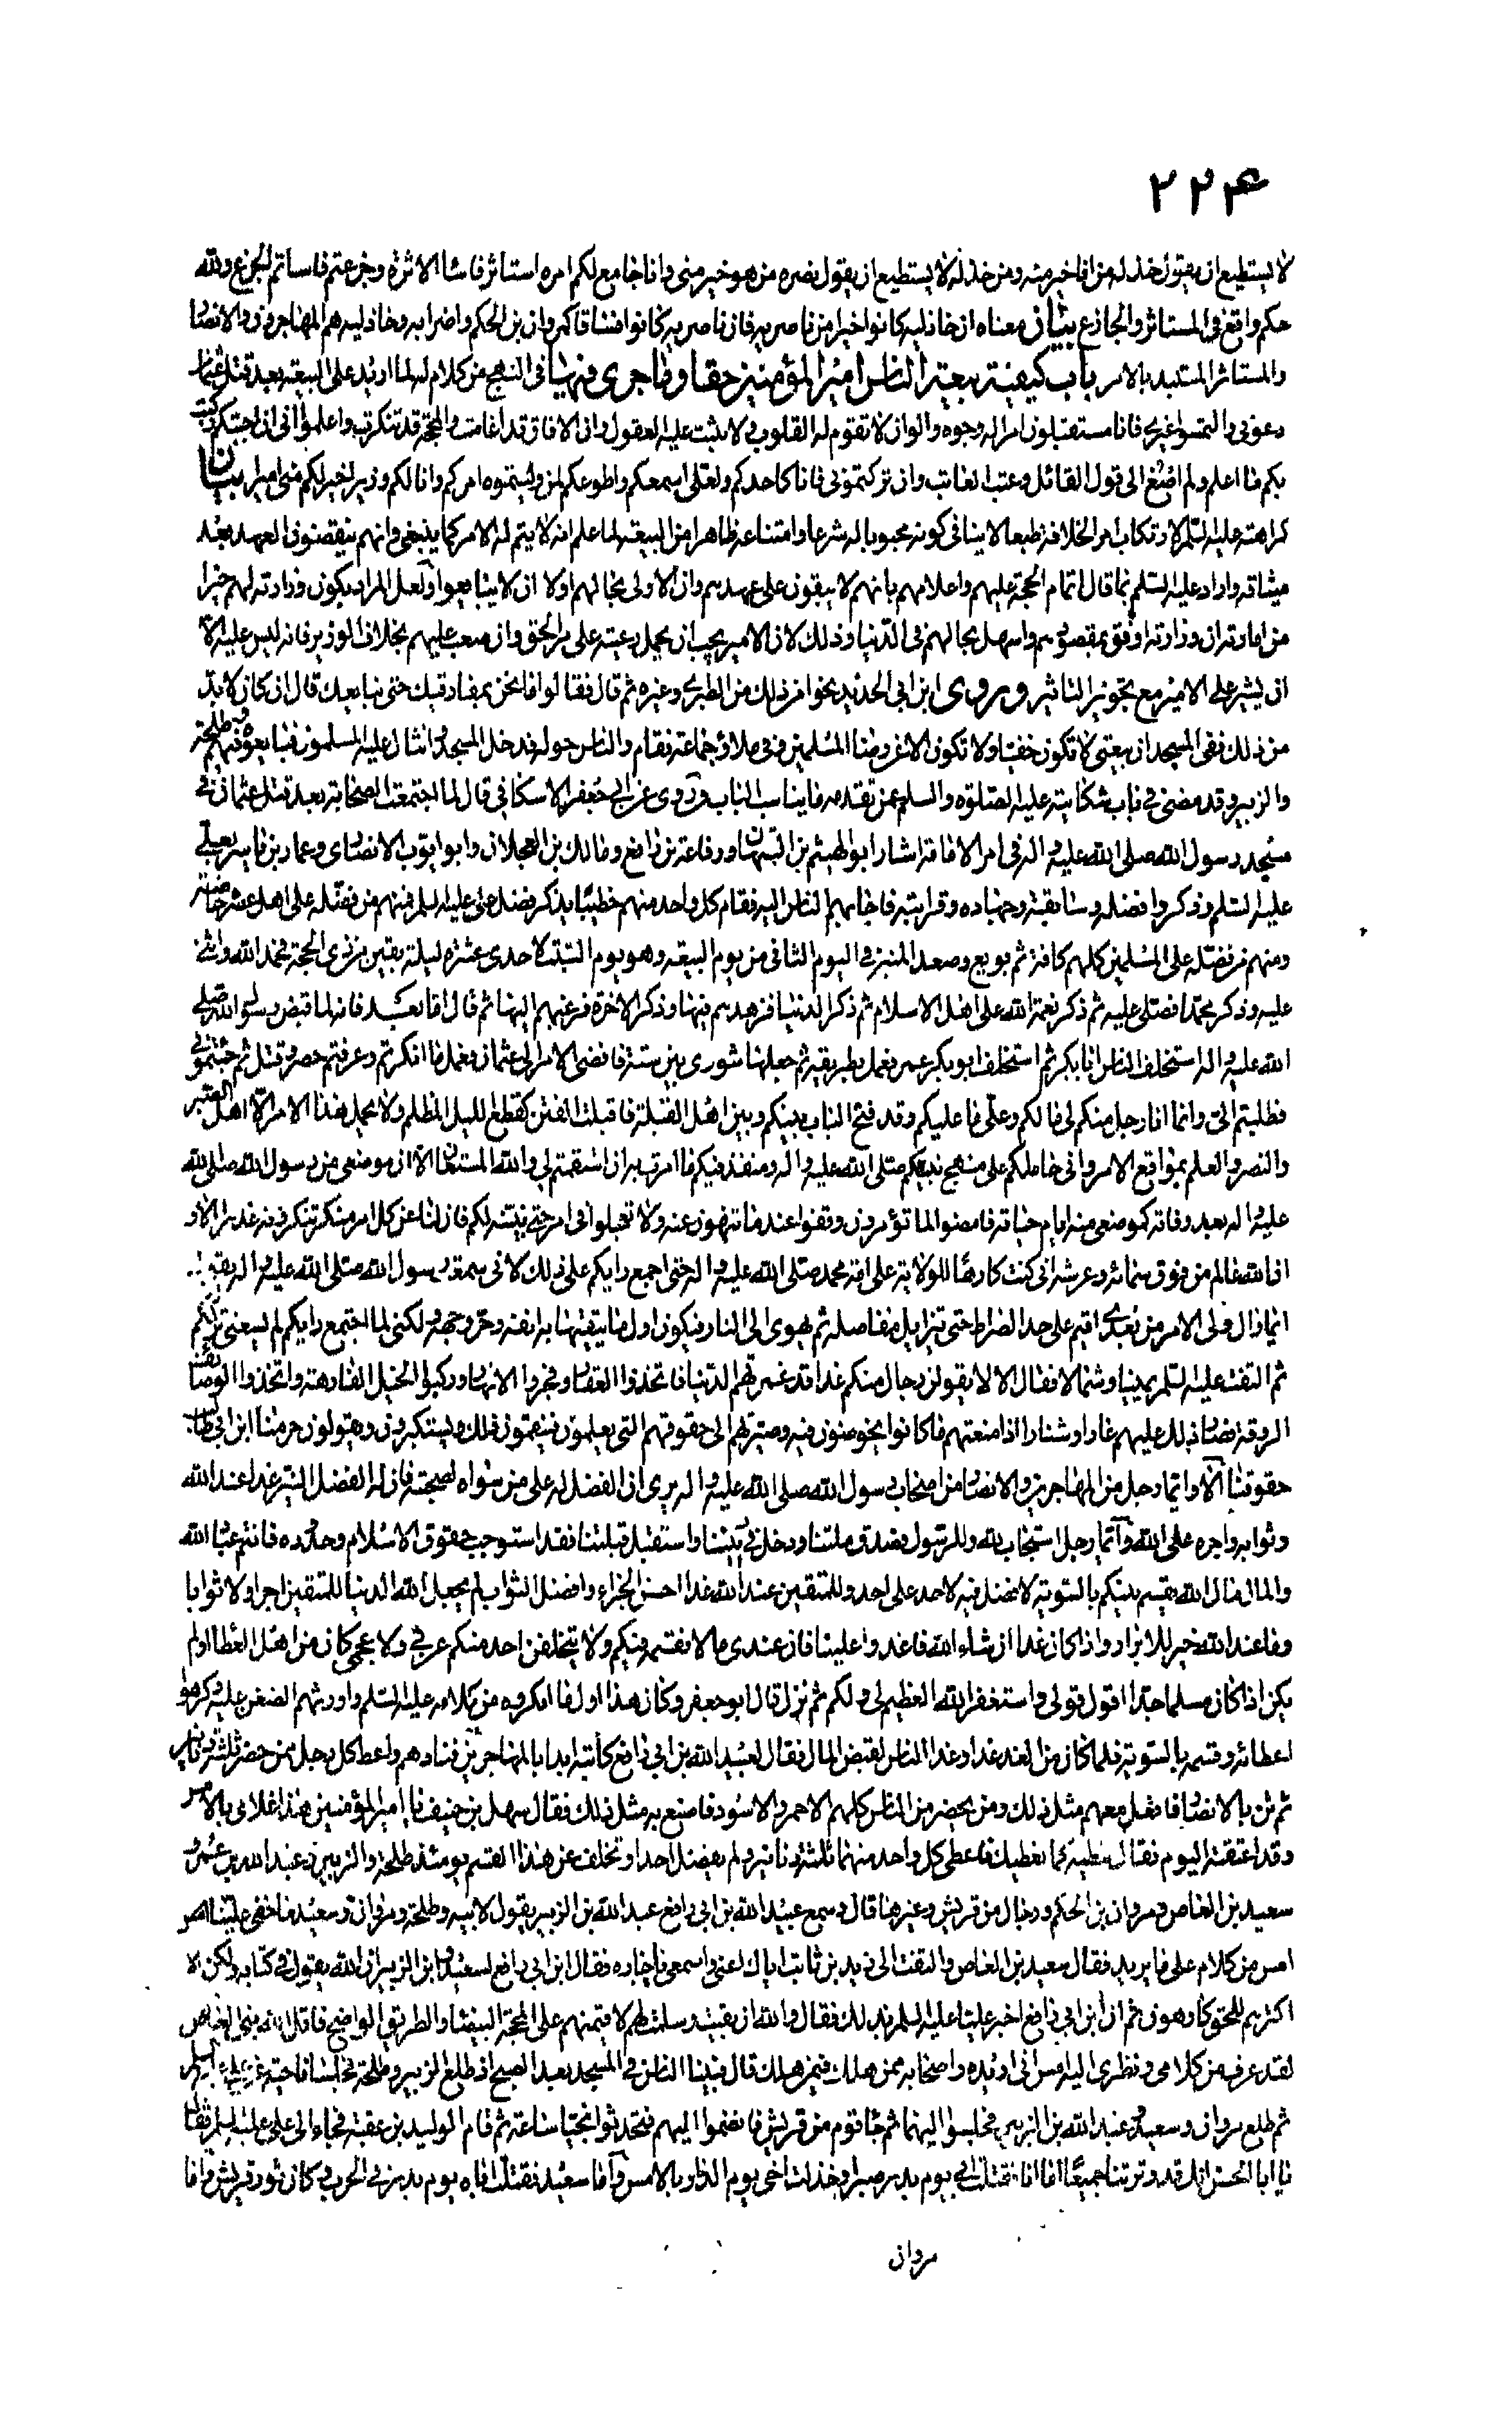 ۲۲۴
لا يستطيع ان يقول خذله من انا خير منه ومن خذله لا يستطيع ان يقول نصره من هو خير مني وانا جامع لكم امره استاثر فاساء الاثرة وجزعتم فاساتم الجزع ولله
حكم واقع في المستاثر والجازع بيان معناه ان خاذليه كانوا خيرا من ناصريه فان ناصريه كانوا فساقا كمروان بن الحكم واضرابه وخاذليه هم المهاجرون والانصار
والمستاثر المستبد بالامر باب كيفية بيعة الناس امير المؤمنين حقا وما جرى فيها في النهج من كلام له لما اريد على البيعة بعد قتل عثمان
دعوني والتمسوا غيري فانا مستقبلون امرا له وجوه والوان لا تقوم له القلوب ولا يثبت عليه العقول وان الافاق قد اغامت والمحجة قد تنكرت واعلموا اني ان اجبتكم ركبت
بكم ما اعلم ولم اصغ الى قول القائل وعتب العاتب وان تركتموني فانا كاحدكم ولعلي اسمعكم واطوعكم لمن وليتموه امركم وانا لكم وزيرا خير لكم مني اميرا بيان
كراهته عليه السلم لارتكاب امر الخلافة طبعا لا ينافي كونه محبوبا له شرعا وامتناعه ظاهرا من البيعة لما علم انه لا يتم له الامر كما ينبغي وانهم ينقضون العهد بعد
ميثاقه واراد عليه السلم بما قال اتمام الحجة عليهم واعلامهم بانهم لا يبقون على عهدهم وان الاولى بحالهم اولا ان لا يبايعوا ولعل المراد بكون وزارته لهم خيرا
من امارته ان وزارته اوفق بمقصودهم واسهل بحالهم في الدنيا وذلك لان الامير يجب ان يحمل رعيته على مر الحق وان صعب عليهم بخلاف الوزير فانه ليس عليه الا
ان يشير على الامير مع تجويز التاثير وروى ابن ابي الحديد نحوا من ذلك من الطبري وغيره ثم قال فقالوا ما نحن بمفارقيك حتى نبايعك قال ان كان لا بد
من ذلك ففي المسجد ان بيعتي لا تكون خفيا ولا تكون الا عن رضا المسلمين وفي ملاء وجماعة فقام والناس حوله فدخل المسجد وانثال عليه المسلمون فبايعوه وفيهم طلحة
والزبير وقد مضى في باب شكايته عليه الصلوة والسلم عمن تقدمه ما يناسب الباب وروى عن ابي جعفر الاسكافي قال لما اجتمعت الصحابة بعد قتل عثمان في
مسجد رسول الله صلى الله عليه واله في امر الامامة اشار ابو الهيثم بن التيهان ورفاعة بن رافع ومالك بن العجلان وابو ايوب الانصاري وعمار بن ياسر بعلي
عليه السلم وذكروا فضله وسابقته وجهاده وقرابته فاجابهم الناس اليه فقام كل واحد منهم خطيبا يذكر فضل علي عليه السلم فمنهم من فضله على اهل عصره خاصة
ومنهم من فضله على المسلمين كلهم كافة ثم بويع وصعد المنبر في اليوم الثاني من يوم البيعة وهو يوم السبت لاحدى عشرة ليلة بقين من ذي الحجة فحمد الله واثنى
عليه وذكر محمدا فصلى عليه ثم ذكر نعمة الله على اهل الاسلام ثم ذكر الدنيا فزهدهم فيها وذكر الاخرة فرغبهم اليها ثم قال اما بعد فانه لما قبض رسول الله صلى
الله عليه واله استخلف الناس ابا بكر ثم استخلف ابو بكر عمر فعمل بطريقه ثم جعلها شورى بين ستة فافضى الامر الى عثمان فعمل ما انكرتم وعرفتم ثم حصر وقتل ثم جئتموني
فطلبتم الي وانما انا رجل منكم لي ما لكم وعلي ما عليكم وقد فتح الباب بينكم وبين اهل القبلة فاقبلت الفتن كقطع الليل المظلم ولا يحمل هذا الامر الا اهل الصبر
والنصر والعلم بمواقع الامر واني حاملكم على منهج نبيكم صلى الله عليه واله ومنفذ فيكم ما امرت به ان استقمتم لي والله المستعان الا ان موضعي من رسول الله صلى الله
عليه واله بعد وفاته كموضعي منه ايام حياته فامضوا لما تؤمرون وقفوا عندما تنهون عنه ولا تعجلوا في امر حتى نبينه لكم فان لنا عن كل امر منكر تنكرونه عذرا الا و
ان الله عالم من فوق سمائه وعرشه اني كنت كارها للولاية على امة محمد صلى الله عليه واله حتى اجمع رايكم على ذلك لاني سمعت رسول الله صلى الله عليه واله يقول
ايما وال ولي الامر من بعدي اقيم على حد الصراط حتى تتزايل مفاصله ثم يهوي الى النار فيكون اول ما يتقيها به انفه وحر وجهه ولكني لما اجتمع رايكم لم يسعني ترككم
ثم التفت عليه السلم يمينا وشمالا فقال الا لا يقولن رجال منكم غدا قد غمرتهم الدنيا فاتخذوا العقار وفجروا الانهار وركبوا الخيول الفارهة واتخذوا الوصائف
الروقة فصار ذلك عليهم عارا وشنارا اذا منعتهم ما كانوا يخوضون فيه وصيرتهم الى حقوقهم التي يعلمون فينقمون ذلك ويستنكرون ويقولون حرمنا ابن ابي طالب
حقوقنا الا وايما رجل من المهاجرين والانصار من اصحاب رسول الله صلى الله عليه واله يرى ان الفضل له على من سواه لصحبته فان له الفضل النير غدا عند الله
وثوابه واجره على الله وايما رجل استجاب لله وللرسول فصدق ملتنا ودخل في ديننا واستقبل قبلتنا فقد استوجب حقوق الاسلام وحدوده فانتم عباد الله
والمال مال الله يقسم بينكم بالسوية لا فضل فيه لاحد على احد وللمتقين عند الله غدا احسن الجزاء وافضل الثواب لم يجعل الله الدنيا للمتقين اجرا ولا ثوابا
وما عند الله خير للابرار واذا كان غدا ان شاء الله فاغدوا علينا فان عندي مالا نقسمه فيكم ولا يتخلفن احد منكم عربي ولا عجمي كان من اهل العطا او لم
يكن اذا كان مسلما حرا اقول قولي واستغفر الله العظيم لي ولكم ثم نزل قال ابو جعفر وكان هذا اول ما انكروه من كلامه عليه السلم واورثهم الضغن عليه وكرهوا
اعطائه وقسمه بالسوية فلما كان من الغد غدا وغدا الناس لقبض المال فقال لعبيد الله بن ابي رافع كاتبه ابدا بالمهاجرين فنادهم واعط كل رجل ممن حضر ثلثة دنانير
ثم ثن بالانصار فافعل معهم مثل ذلك ومن يحضر من الناس كلهم الاحمر والاسود فاصنع به مثل ذلك فقال سهل بن حنيف يا امير المؤمنين هذا غلامي بالامس
وقد اعتقته اليوم فقال نعطيه كما نعطيك فاعطى كل واحد منهما ثلثة دنانير ولم يفضل احدا وتخلف عن هذا القسم يومئذ طلحة والزبير وعبد الله بن عمر و
سعيد بن العاص ومروان بن الحكم ورجال من قريش وغيرها قال وسمع عبيد الله بن ابي رافع عبد الله بن الزبير يقول لابيه وطلحة ومروان وسعيد ما خفي علينا امر
امس من كلام علي ما يريد فقال سعيد بن العاص والتفت الى زيد بن ثابت اياك اعني واسمعي يا جاره فقال ابن ابي رافع لسعيد وابن الزبير ان الله يقول في كتابه ولكن
اكثرهم للحق كارهون ثم ان ابن ابي رافع اخبر عليا عليه السلم بذلك فقال والله ان بقيت وسلمت لهم لاقيمنهم على المحجة البيضاء والطريق الواضح قاتل الله ابن العاص
لقد عرف من كلامي ونظري اليه امس اني اريده واصحابه ممن هلك فيمن هلك قال فبينا الناس في المسجد بعد الصبح اذ طلع الزبير وطلحة فجلسا ناحية عن علي عليه السلم
ثم طلع مروان وسعيد وعبد الله بن الزبير فجلسوا اليهما ثم جاء قوم من قريش فانضموا اليهم فتحدثوا نجيا ساعة ثم قام الوليد بن عقبة فجاء الى علي عليه السلم فقال
يا ابا الحسن انك قد وترتنا جميعا اما انا فقتلت ابي يوم بدر صبرا وخذلت اخي يوم الدار بالامس واما سعيد فقتلت اباه يوم بدر في الحرب وكان ثور قريش واما
مروان